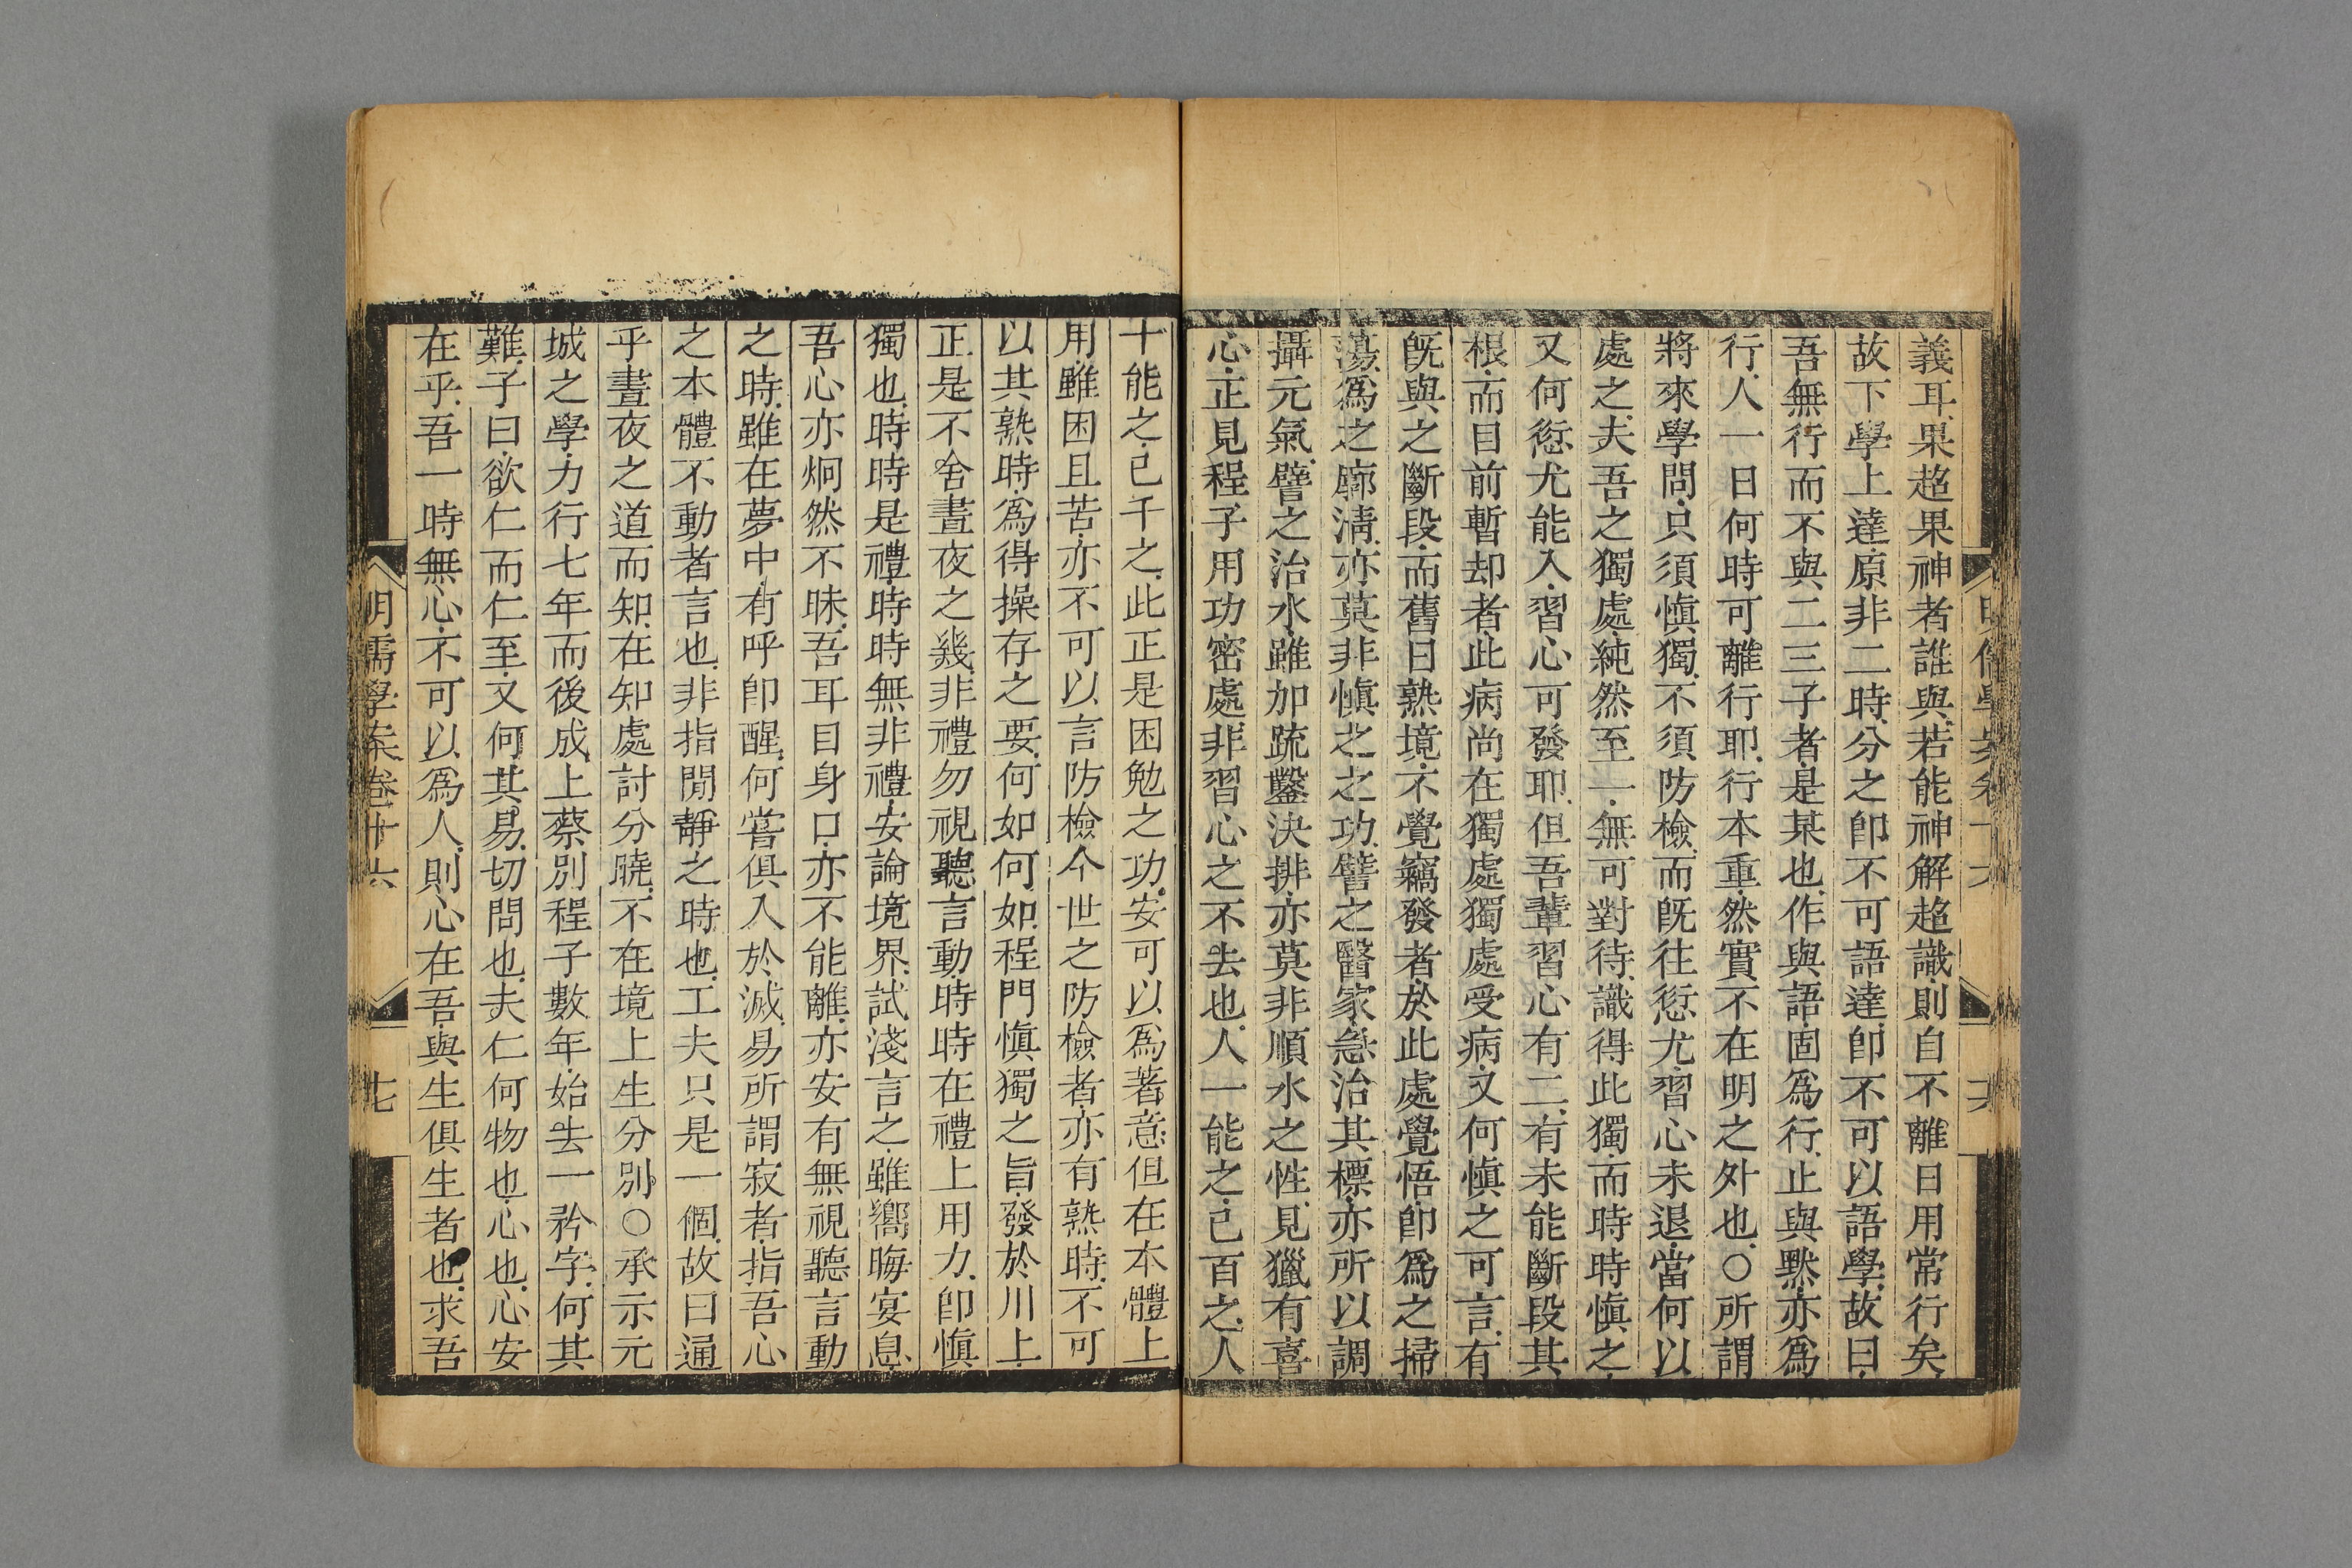 義耳果超果神者誰與若能神解超識則自不離日用常行矣
故下學上達原非二時分之卽不可語達卽不可以語學故曰
吾無行而不與二三子者是某也作與語固爲行止與默亦爲
行人一日何時可離行耶行本重然實不在明之外也○所謂
將來學問只須愼獨不須防檢而旣往愆尤習心未退當何以
處之夫吾之獨處純然至一無可對待識得此獨而時時愼之
又何愆尤能入習心可發耶但吾輩習心有二有未能斷段其
根而目前暫却者此病尚在獨處獨處受病又何愼之可言有
旣與之斷段而舊日熟境不覺竊發者於此處覺悟卽爲之掃
蕩爲之廓淸亦莫非愼之之功譬之醫家急治其標亦所以調
攝元氣譬之治水雖加疏鑿決排亦莫非順水之性見獵有喜
心正見程子用功密處非習心之不去也人一能之己百之人
十能之己千之此正是困勉之功安可以爲著意但在本體上
用雖困且苦亦不可以言防檢今世之防檢者亦有熟時不可
以其熟時爲得操存之要何如何如程門愼獨之旨發於川上
正是不舍晝夜之幾非禮勿視聽言動時時在禮上用力卽愼
獨也時時是禮時時無非禮安論境界試淺言之雖嚮晦宴息
吾心亦炯然不昧吾耳目身口亦不能離亦安有無視聽言動
之時雖在夢中有呼卽醒何嘗俱入於滅易所謂寂者指吾心
之本體不動者言也非指閒靜之時也工夫只是一個故曰通
乎晝夜之道而知在知處討分曉不在境上生分別○承示元
城之學力行七年而後成上蔡別程子數年始去一矜字何其
難子曰欲仁而仁至又何其易切問也夫仁何物也心也心安
在乎吾一時無心不可以爲人則心在吾與生俱生者也求吾
明儒學案卷十六
七